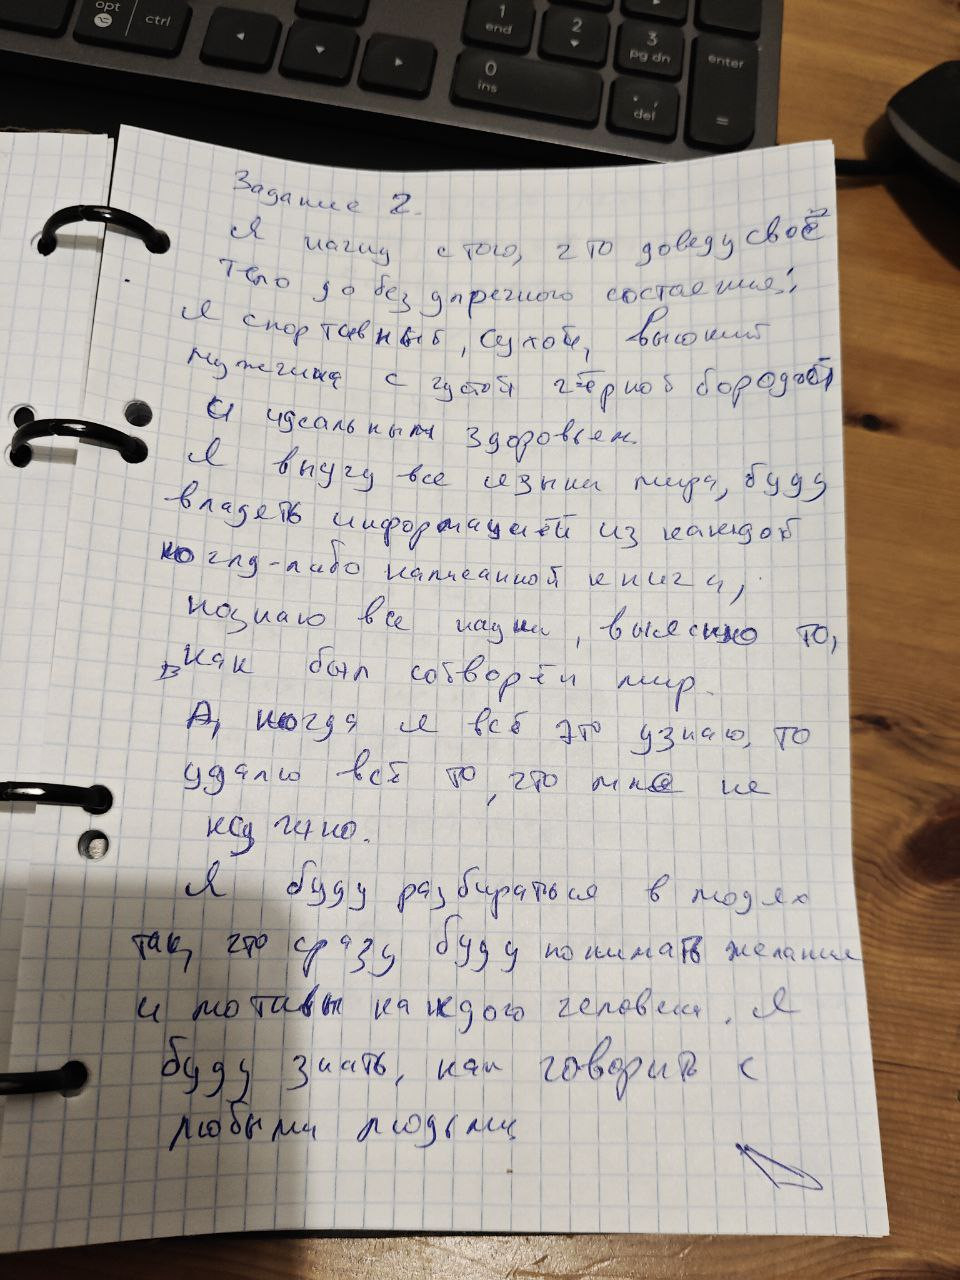 opt
ctrl
1
end
2
3
pg dn
enter
0
ins
del
=
Задание 2.
Я начну с того, что доведу своё
тело до безупречного состояния:
Я спортивный, сухой, высокий
мужчина с густой чёрной бородой
и идеальным здоровьем.
Я выучу все языки мира, буду
владеть информацией из каждой
когда-либо написанной книги,
познаю все науки, выясню то,
как был сотворён мир.
А, когда я всё это узнаю, то
удалю всё то, что мне не
нужно.
Я буду разбираться в людях
так, что сразу буду понимать желание
и мотивы каждого человека. Я
буду знать, как говорить с
любыми людьми